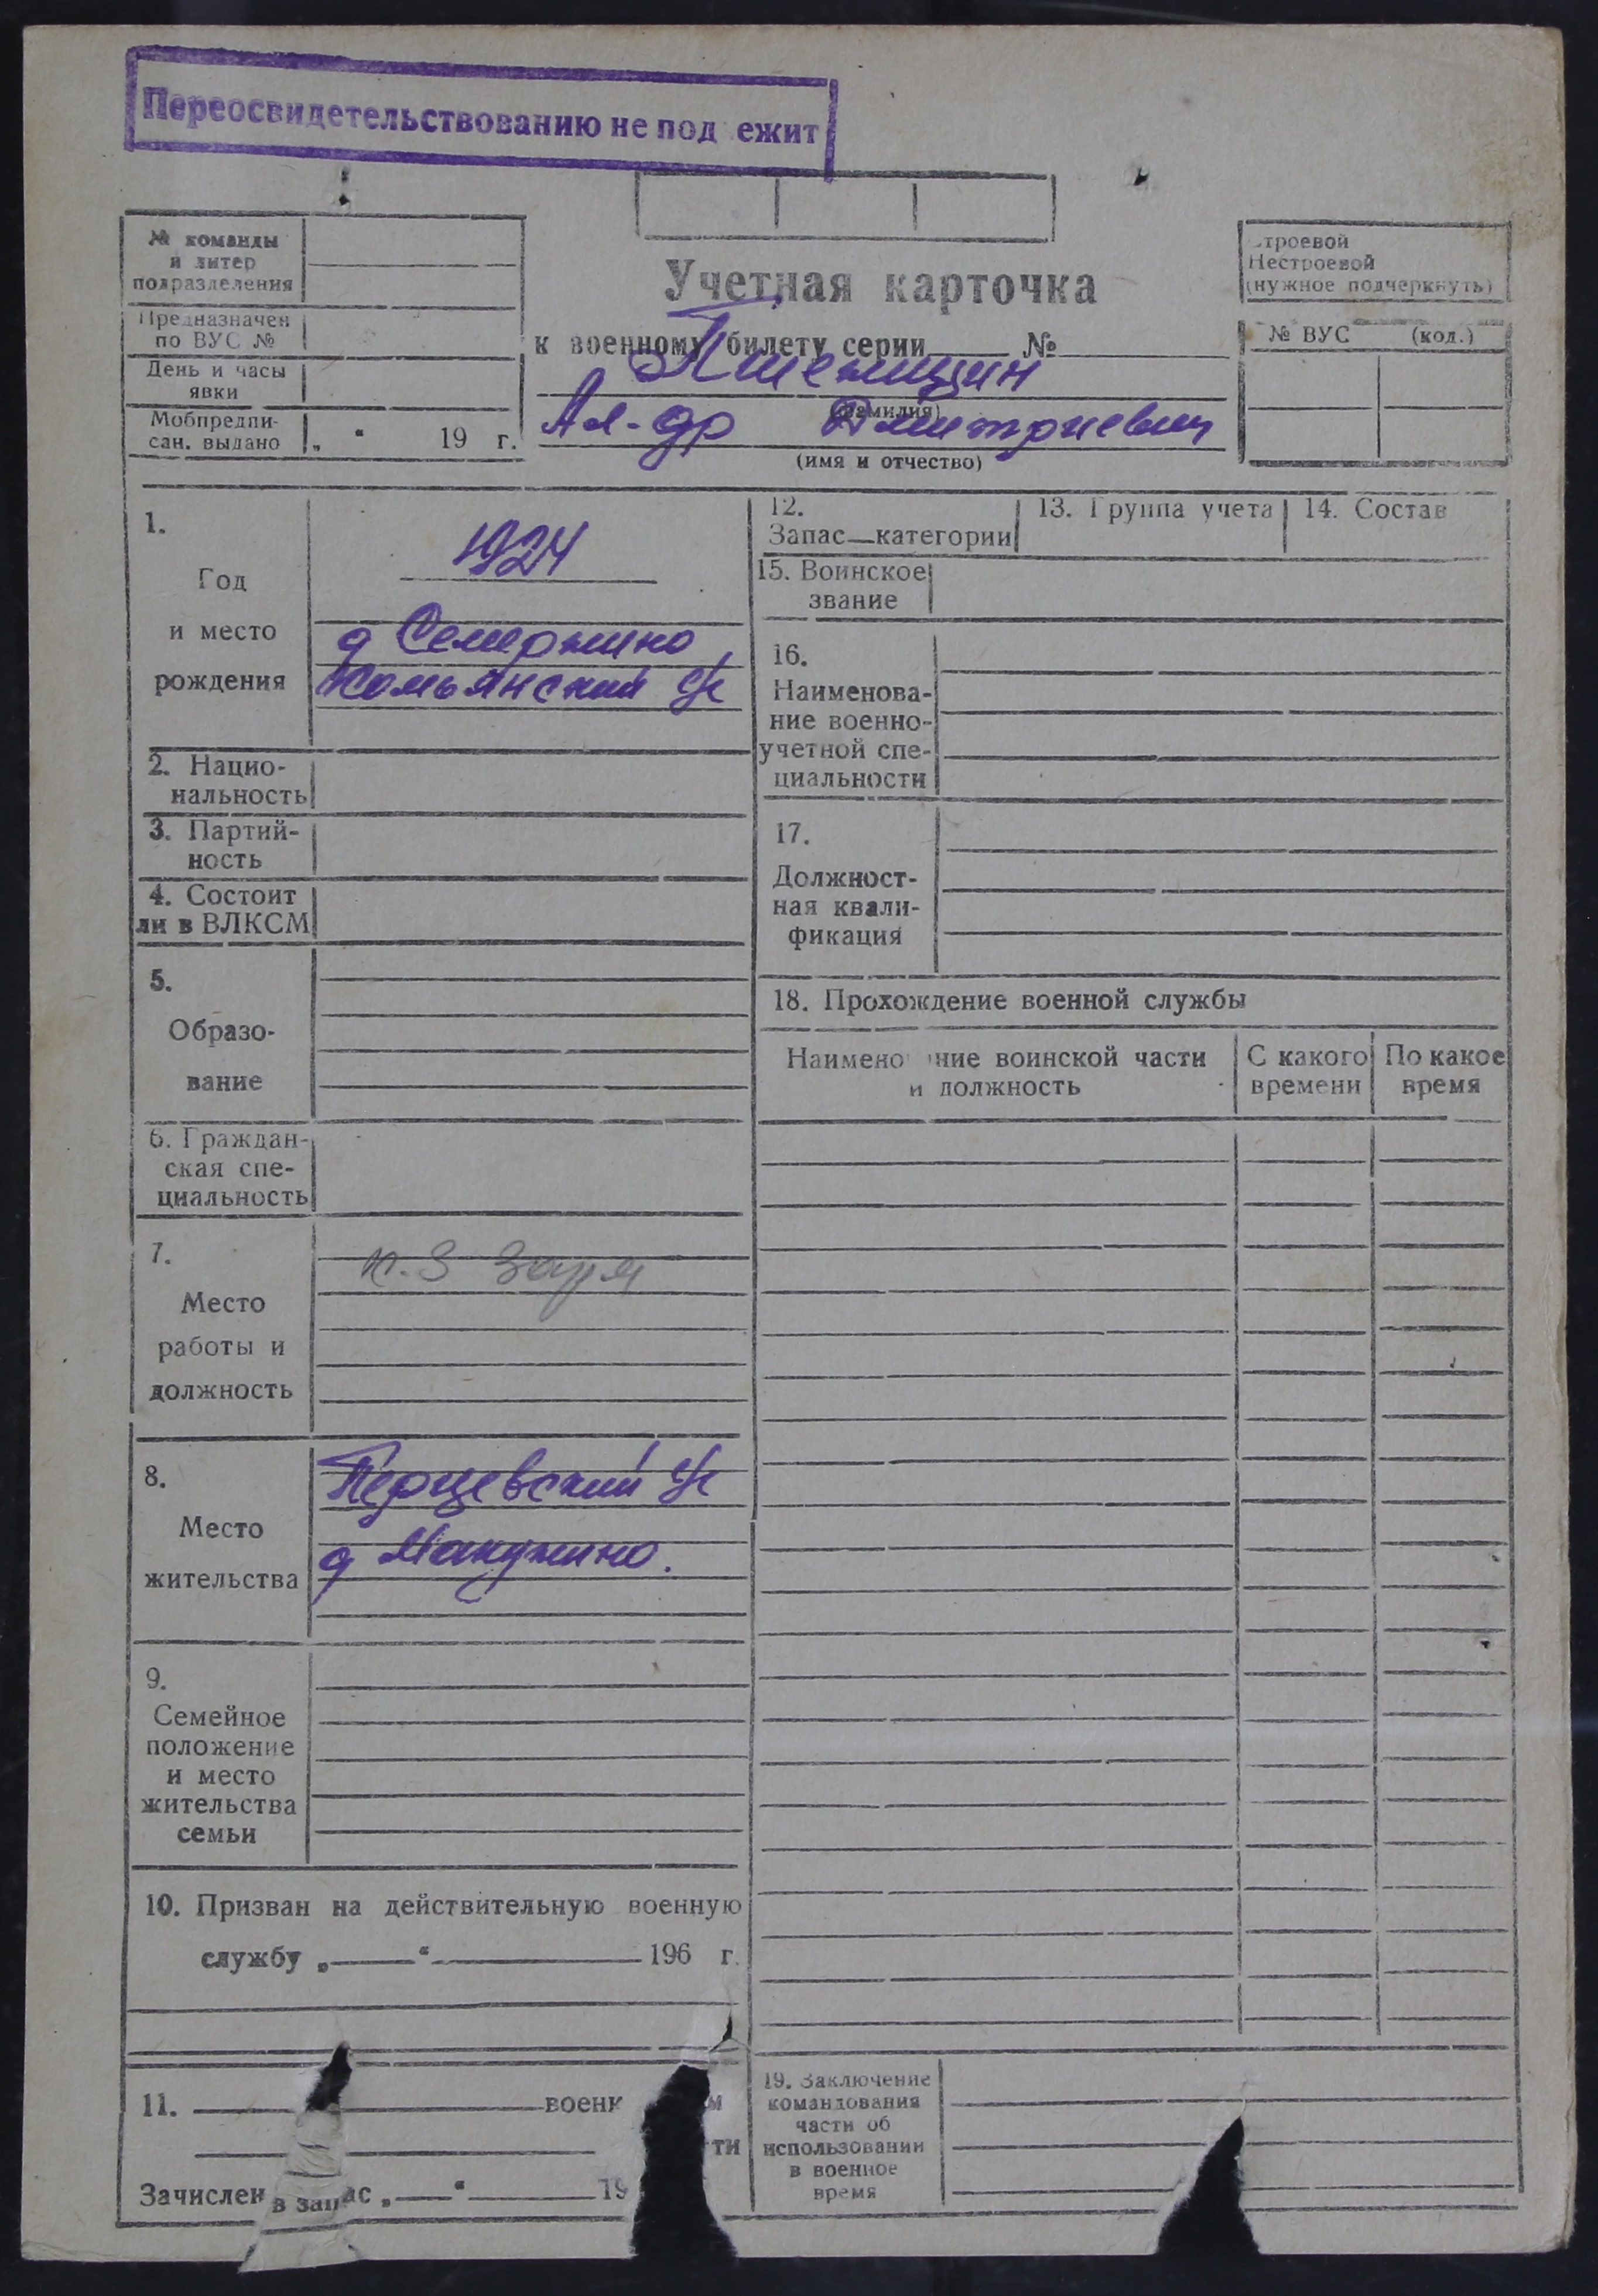 Переосвидетельствованию не под ежит
№ команды
и литер
подразделения
Предназначен
по ВУС №
День и часы
явки
Мобпредпи-
сан. выдано „ “ 19 г.
Учетная карточка
к военному билету серии №
(фамилия)
Ал-др Дмитриевич
(имя и отчество)
Строевой
Нестроевой
(нужное подчеркнуть)
№ ВУС (код.)
1.
Год
и место
рождения
1924
д Семержино
Комьянский с/с
2. Нацио-
нальность
3. Партий-
ность
4. Состоит
ли в ВЛКСМ
5.
Образо-
вание
6. Граждан-
ская спе-
циальность
7.
Место
работы и
должность
к-з Заря
8.
Место
жительства
Перцевский с/с
д Макужино.
9.
Семейное
положение
и место
жительства
семьи
10. Призван на действительную военную
службу „ “ 196 г.
11. воен
ти
Зачислен в запас „ “ 19
12.
Запас—категории
13. Группа учета
14. Состав
15. Воинское
звание
16.
Наименова-
ние военно-
учетной спе-
циальности
17.
Должност-
ная квали-
фикация
18. Прохождение военной службы
Наименование воинской части
и должность
С какого
времени
По какое
время
19. Заключение
командования
части об
использовании
в военное
время